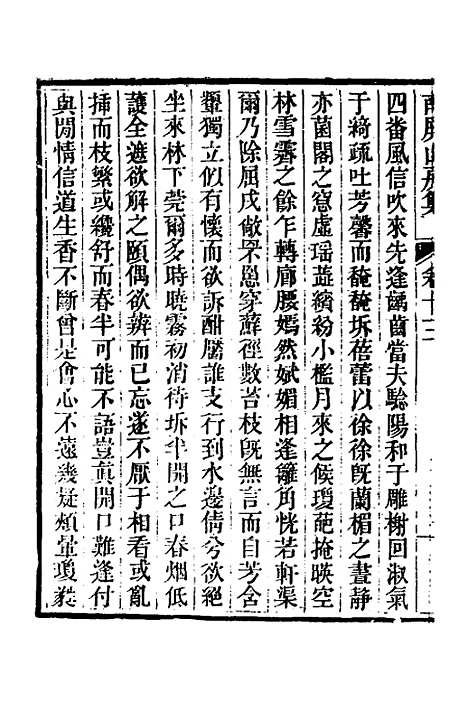 四番風信吹來先逢齲齒當夫驗陽和于雕榭回淑氣
于綺疏吐芳馨而馣馣坼蓓蕾以徐徐旣蘭楣之晝靜
亦菌閣之窻虛瑶蕋繽紛小檻月來之候瓊葩掩暎空
林雪霽之餘乍轉廊腰嫣然娬媚相逢籬角恍若軒渠
爾乃除屈戌敞罘罳穿蘚徑數苔枝旣無言而自芳含
顰獨立似有懷而欲訴酣膌誰支行到水邊倩兮欲絕
坐來林下莞爾多時曉霧初消待坼半開之口春烟低
護全遮欲解之頤偶欲辨而已忘遂不厭于相看或亂
揷而枝繁或纔舒而春半可能不語豈眞開口難逢付
與閒情信道生香不斷會是會心不遠幾疑頰暈瓊